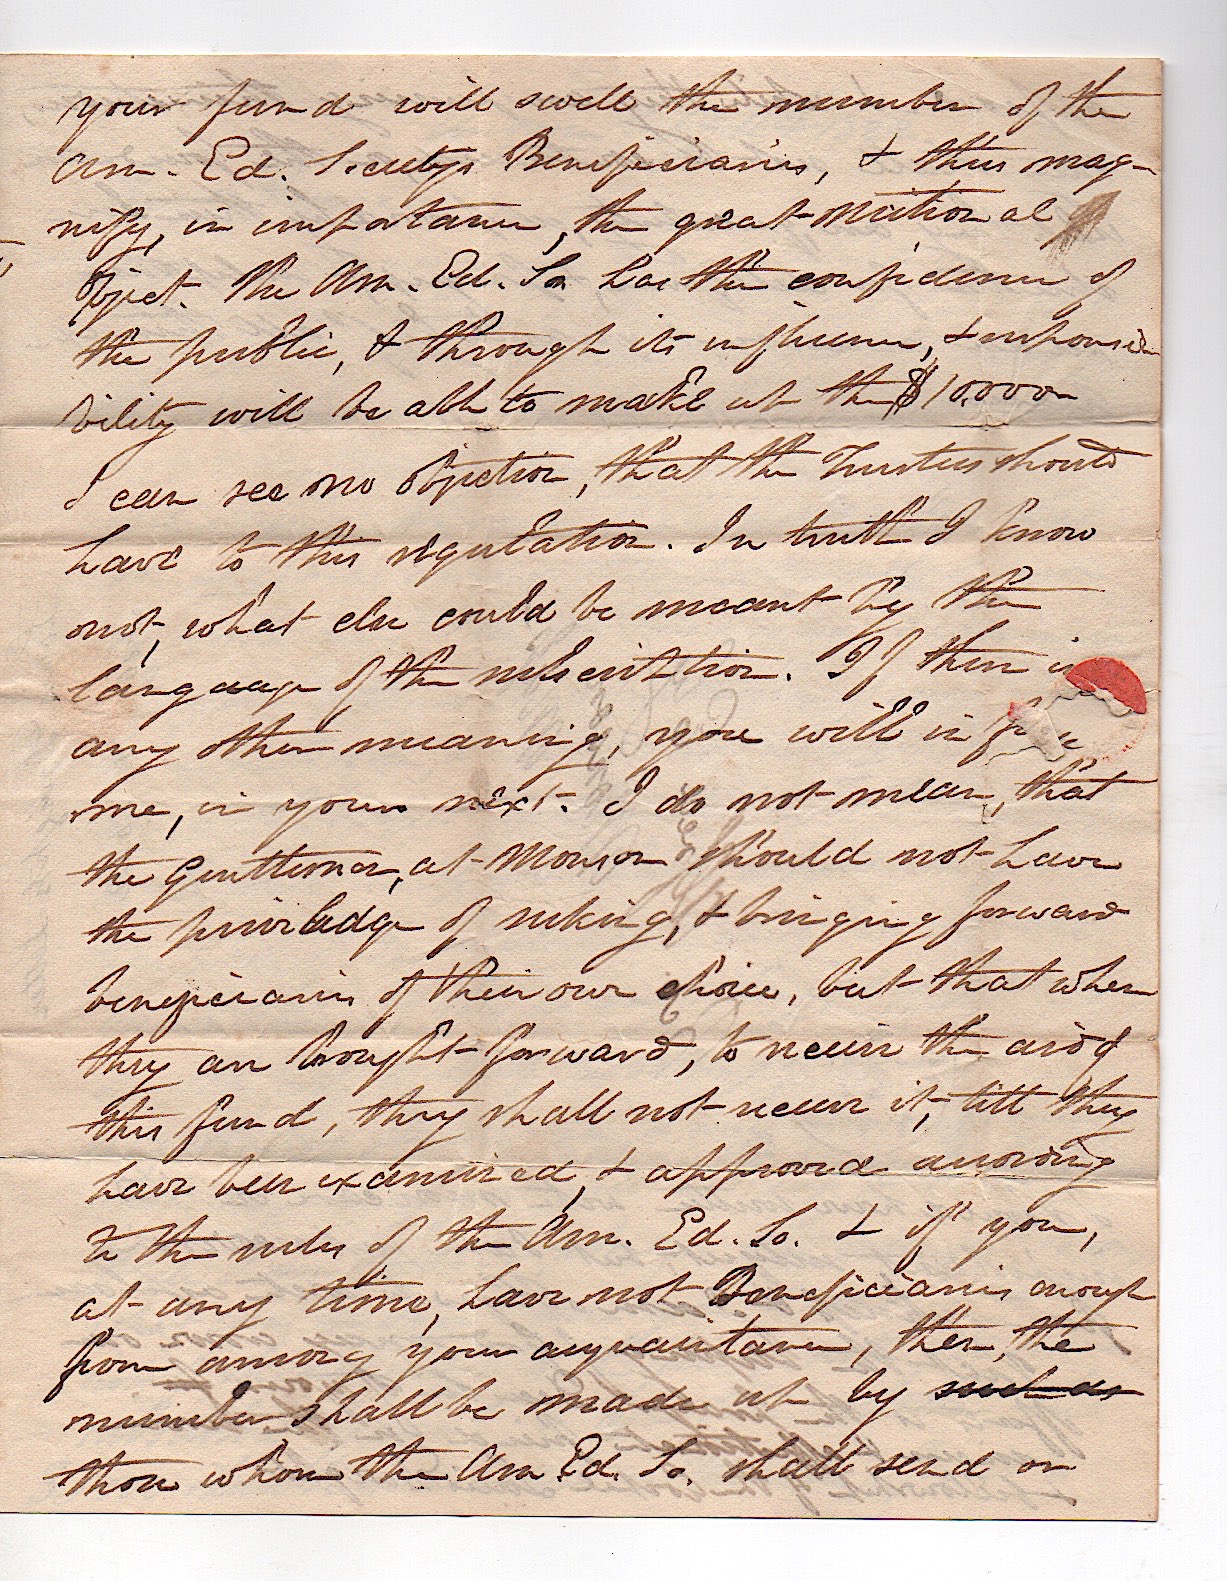 your fund will swell the number of the
Am. Ed. Society's Beneficiaries, & thus mag-
nify, in importance, the great national
object. The Am. Ed. So. has the confidence of
the public, & through its influence, & responsi-
bility will be able to make up the $10,000
I can see no objection, that the Trustees should
have to this regulation. In truth I know
not, what else could be meant by the
language of the subscription. If there is
any other meaning, you will in
me, in your next. I do not mean, that
the Gentlemen, at Monson should not have
the priviledge of seeking, & bringing forward
beneficiaries of their own choice, but that when
they are brought forward, to receive the aid of
this fund, they shall not receive it, till they
have been examined, & approved according
to the rules of the Am. Ed. So. & if you,
at any time, have not Beneficiaries enough
from among your acquaintance, then, the
number shall be made up by such as
those whom the Am. Ed. So. shall send on